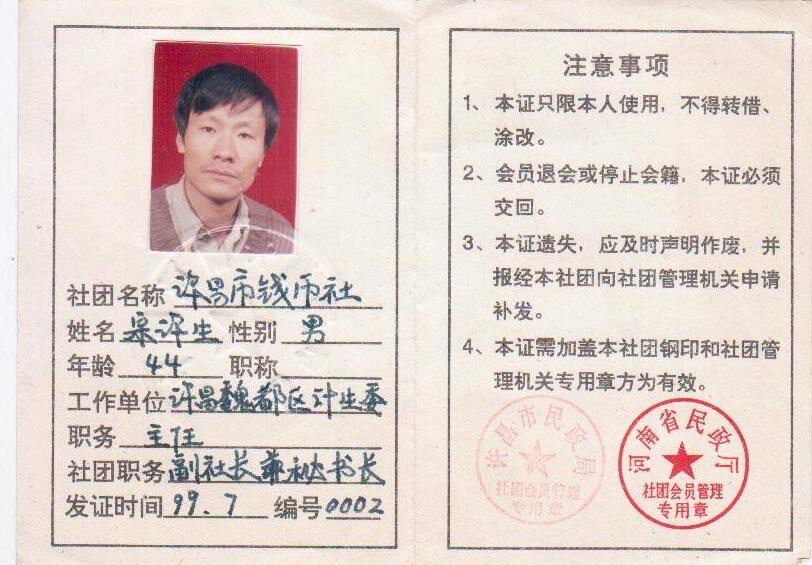 社团名称 许昌市钱币社
姓名 宋许生 性别 男
年龄 44 职称
工作单位 许昌魏都区计生委
职务 主任
社团职务 副社长兼秘书长
发证时间 99.7 编号 0002
注意事项
1、本证只限本人使用，不得转借、
涂改。
2、会员退会或停止会籍，本证必须
交回。
3、本证遗失，应及时声明作废，并
报经本社团向社团管理机关申请
补发。
4、本证需加盖本社团钢印和社团管
理机关专用章方为有效。
许昌市民政局
社团会员管理
专用章
河南省民政厅
社团会员管理
专用章